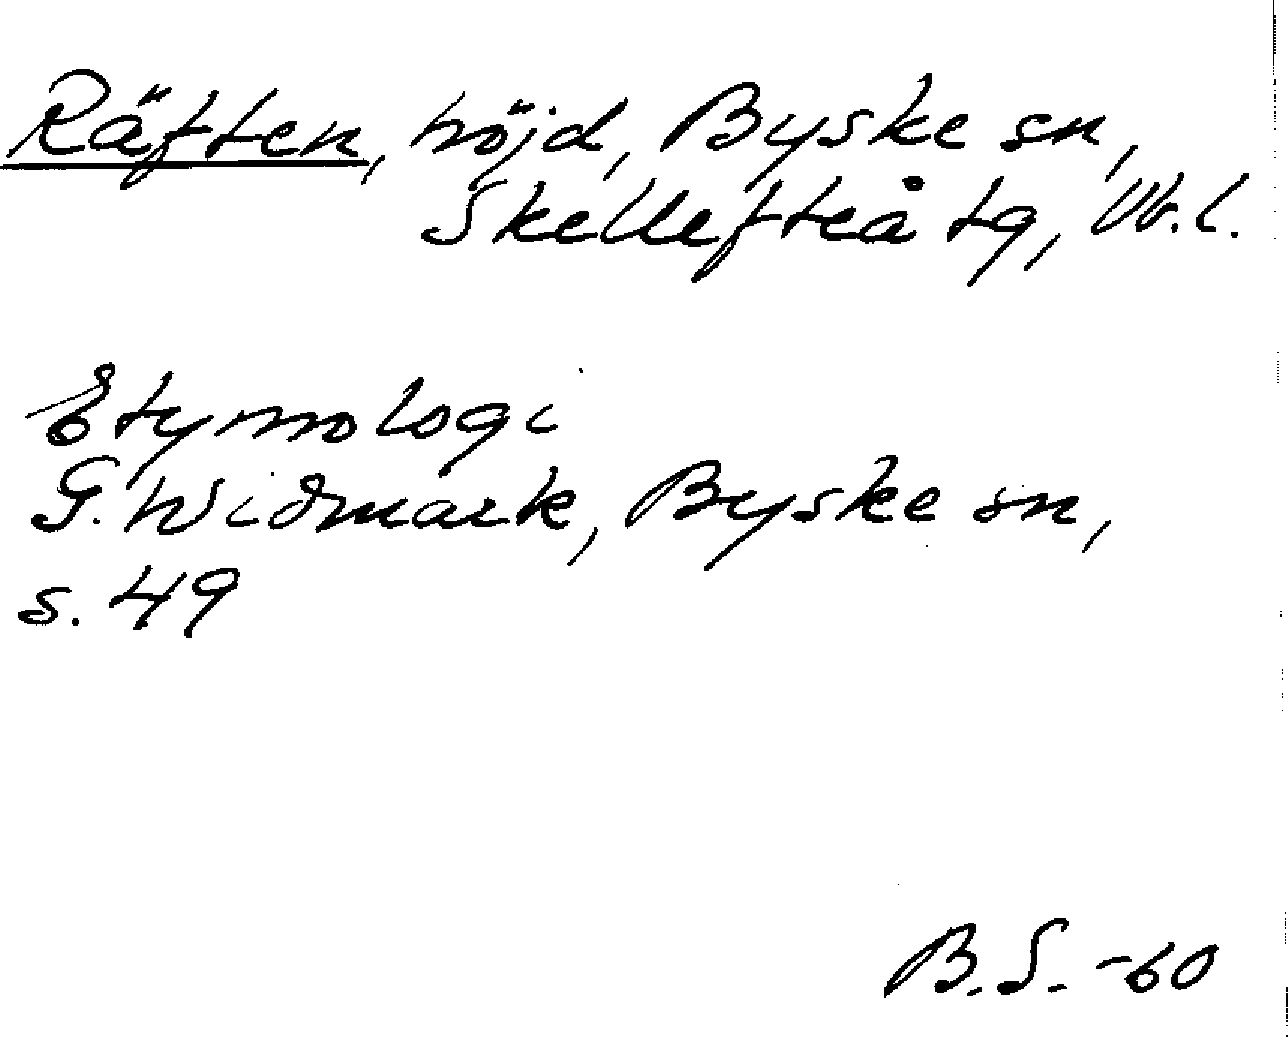 Räften, höjd, Byske sn,
Skellefteå tg, Vb. l.
Etymologi
G. Widmark, Byske sn,
s. 49
B.S. -60